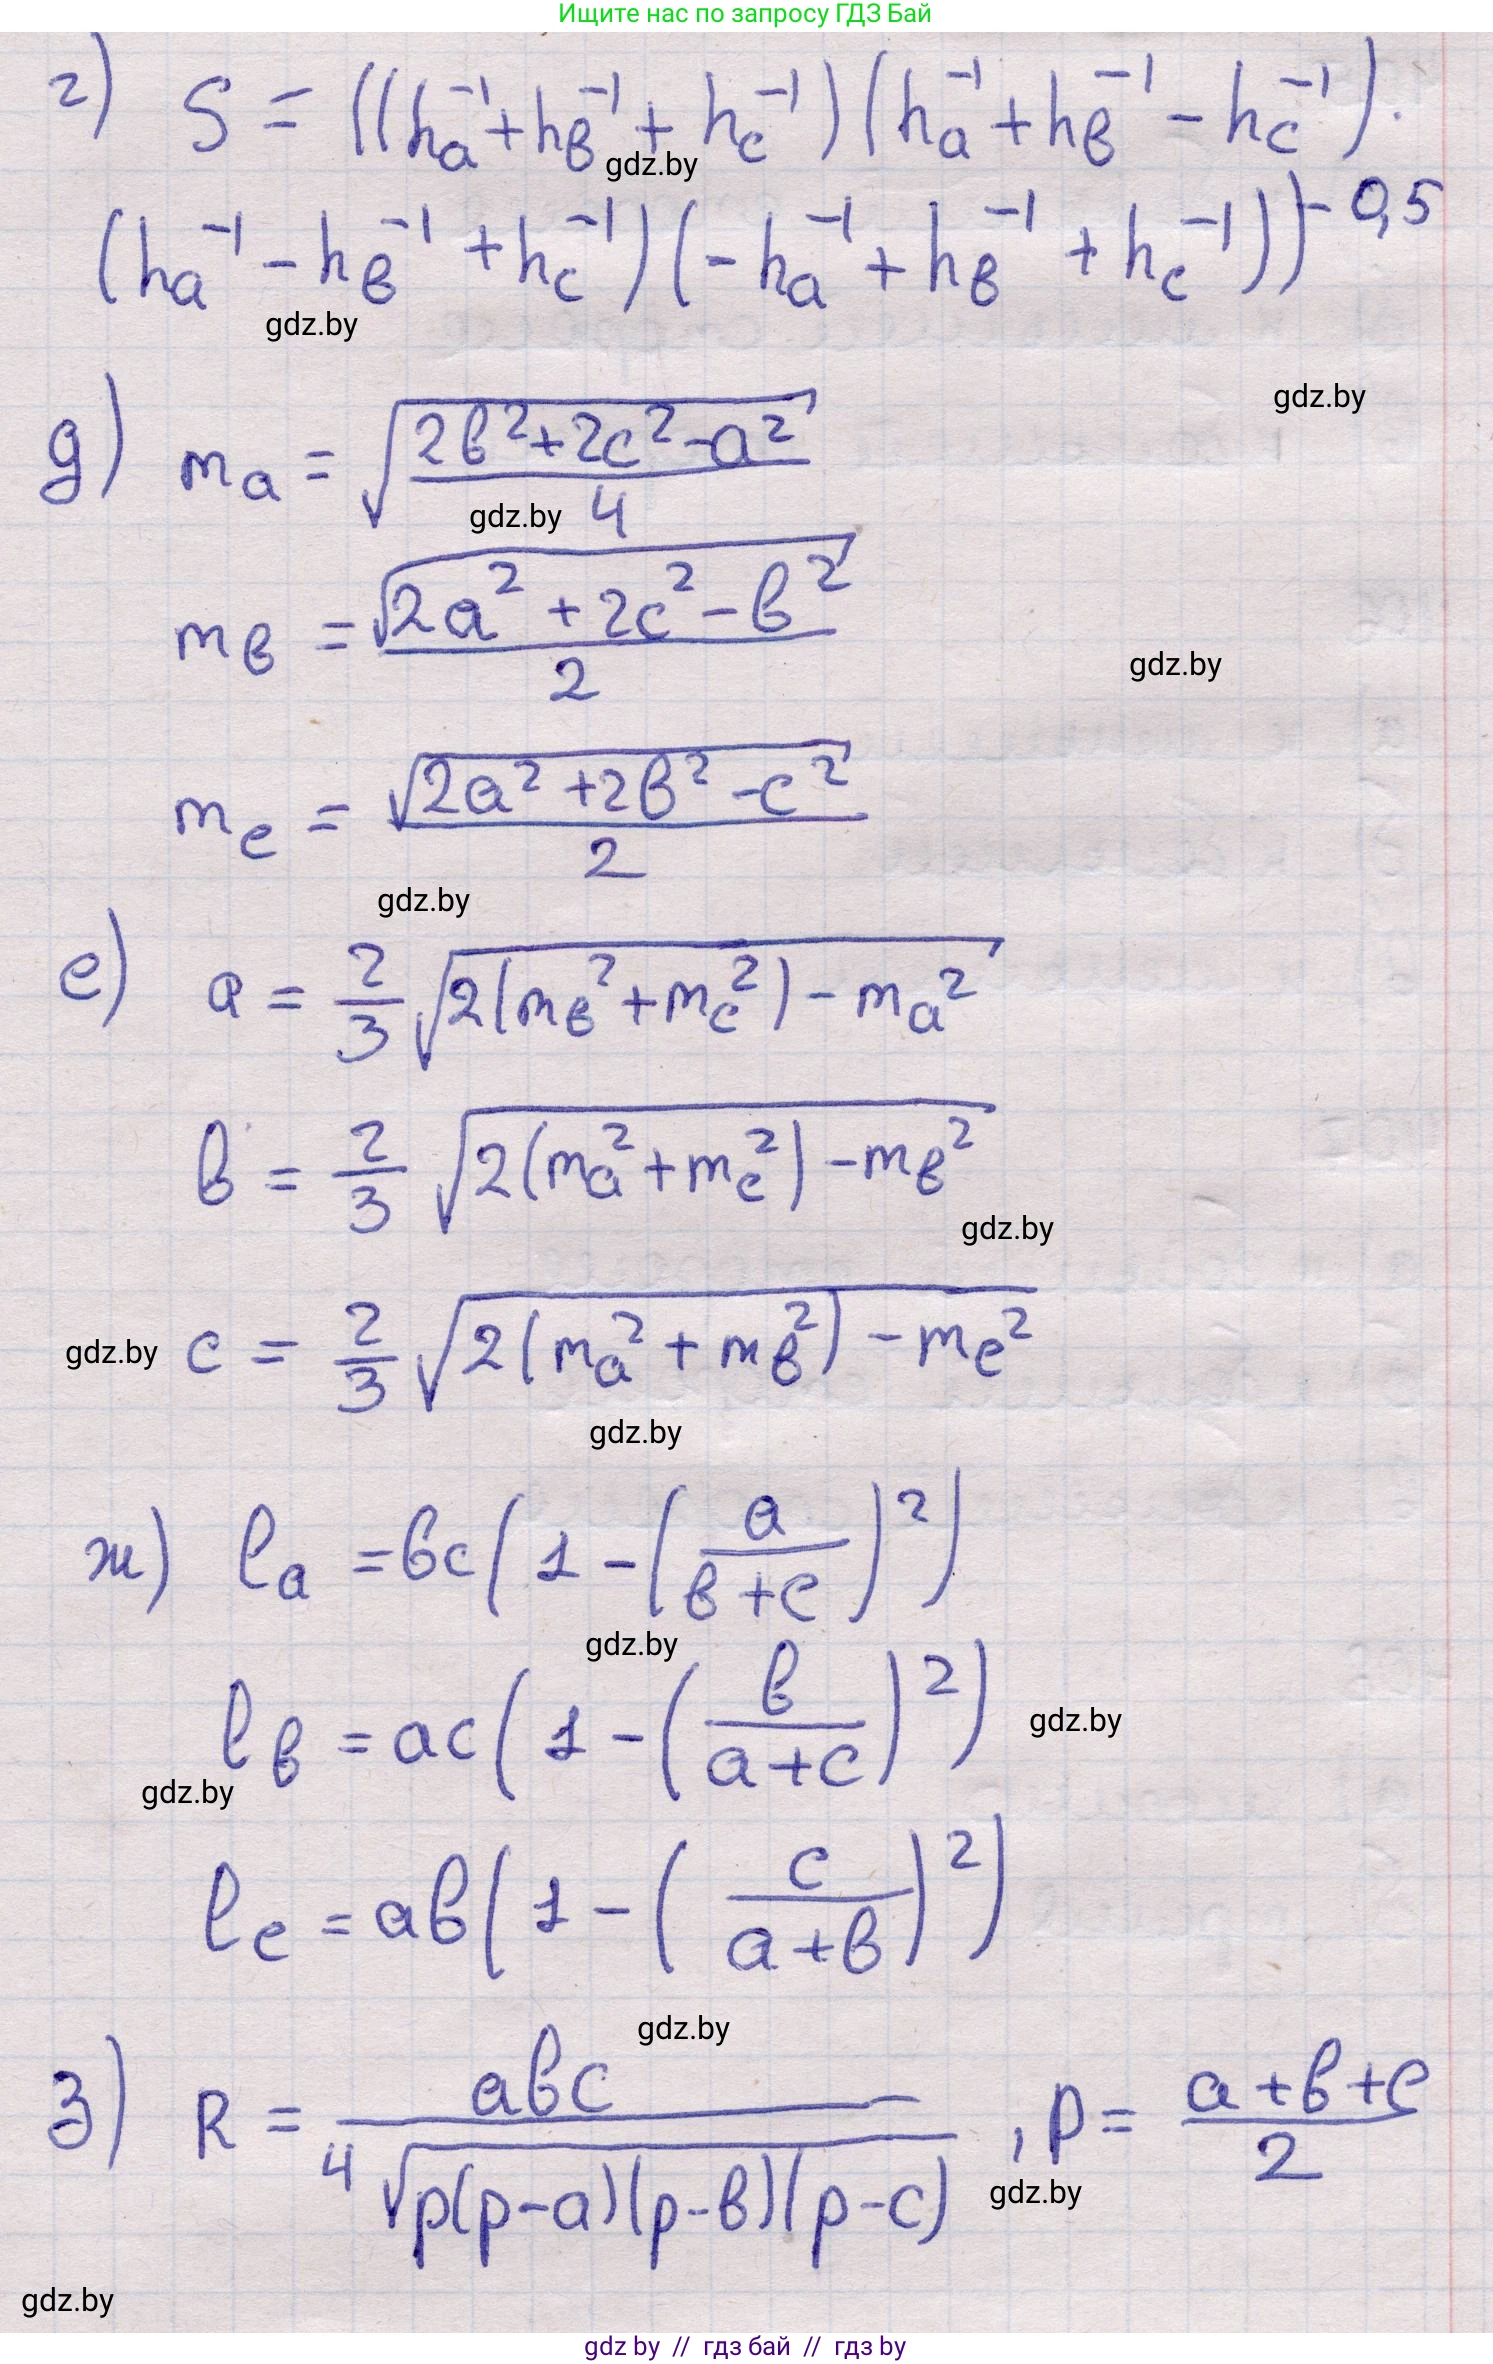 Ищите нас по запросу ГДЗ Бай
г) S = ((hₐ⁻¹ + hв⁻¹ + hс⁻¹)(hₐ⁻¹ + hв⁻¹ − hс⁻¹)·
gdz.by
(hₐ⁻¹ − hв⁻¹ + hс⁻¹)(−hₐ⁻¹ + hв⁻¹ + hс⁻¹))⁻⁰,⁵
gdz.by
gdz.by
д) mₐ = √((2в² + 2с² − a²)/4)
gdz.by
mв = √(2a² + 2c² − в²)/2
gdz.by
mс = √(2a² + 2в² − c²)/2
gdz.by
е) a = 2/3 √(2(mв² + mс²) − mₐ²)
в = 2/3 √(2(mₐ² + mс²) − mв²)
gdz.by
gdz.by c = 2/3 √(2(mₐ² + mв²) − mс²)
gdz.by
ж) lₐ = вc(1 − (a/(в+c))²)
gdz.by
lв = ac(1 − (в/(a+c))²)
gdz.by
gdz.by
lс = aв(1 − (c/(a+в))²)
gdz.by
з) R = aвc/(4√(p(p−a)(p−в)(p−c))), p = (a+в+c)/2
gdz.by
gdz.by
gdz by // гдз бай // гдз by